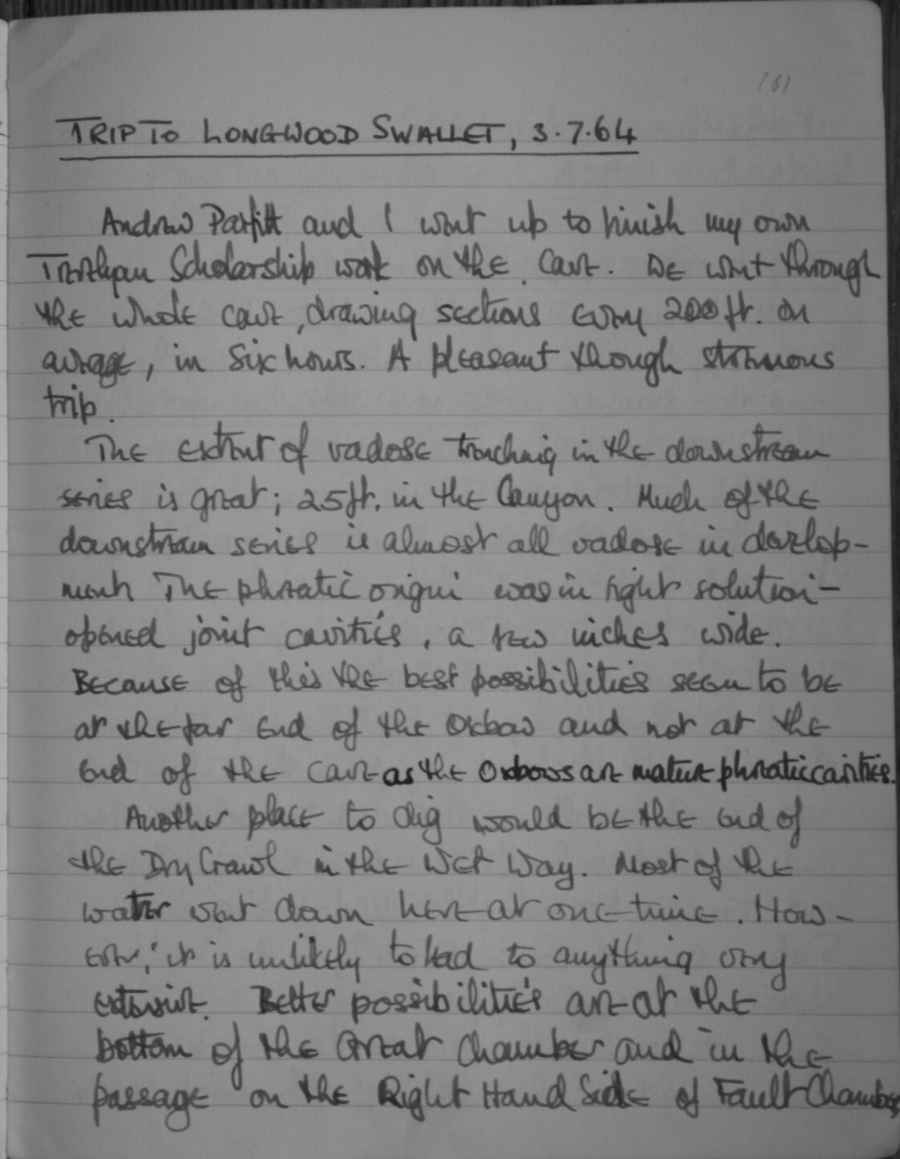 161
TRIP TO LONGWOOD SWALLET, 3.7.64
Andrew Parfitt and I went up to finish my own
Scholarship work on the cave. We went through
the whole cave, drawing sections every 200 ft. on
average, in six hours. A pleasant though strenuous
trip.
The extent of vadose trenching in the downstream
series is great; 25 ft. in the Canyon. Much of the
downstream series is almost all vadose in develop-
ment. The phreatic origin was in tight solution-
opened joint cavities, a few inches wide.
Because of this the best possibilities seem to be
at the far end of the Oxbow and not at the
end of the cave as the oxbows are mature phreatic cavities.
Another place to dig would be the end of
the Dry Crawl in the Wet Way. Most of the
water went down here at one time. How-
ever, it is unlikely to lead to anything very
extensive. Better possibilities are at the
bottom of the Great Chamber and in the
passage on the Right Hand Side of Fault Chamber